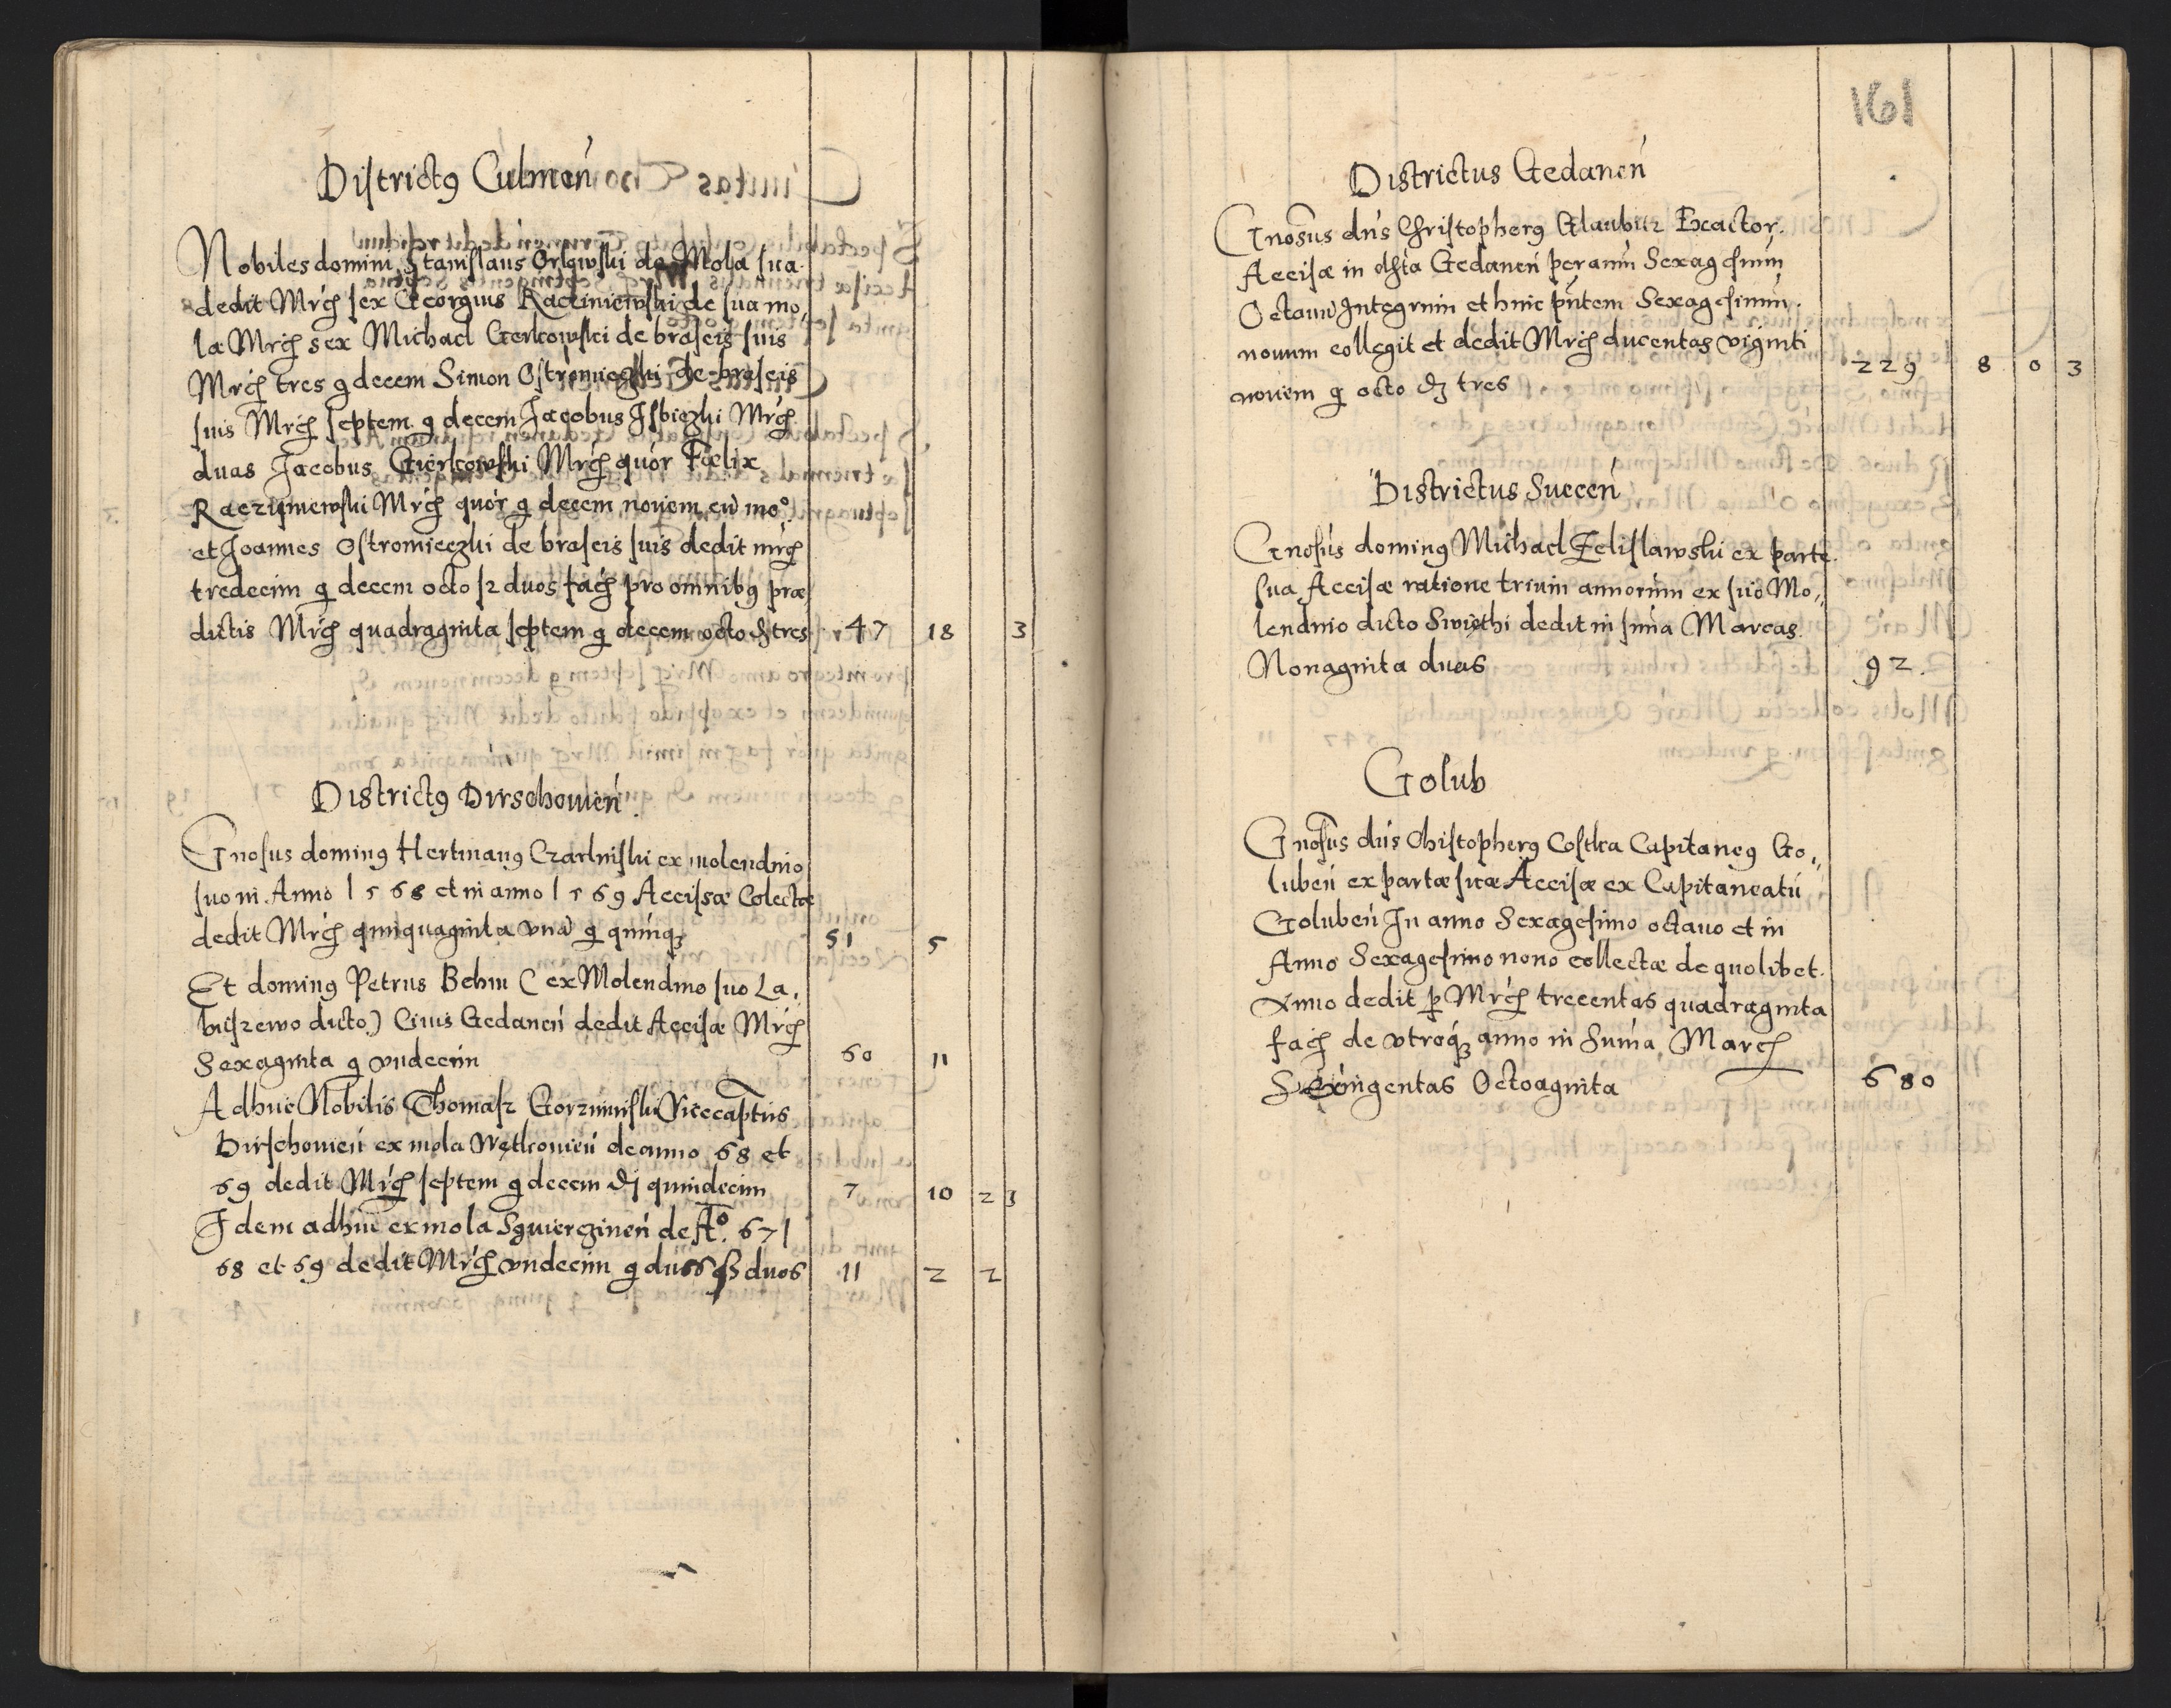 Districtꝯ Culmeń
Nobiles domini Stanislaus Orlowski de Mola sua
dedit Mrcꝭ sex Georgius Raciniewski de sua mo,
la Mrcꝭ sex Michael Gerkowski de braseis suis
Mrcꝭ tres g decem Simon Ostromieczki de braseis
suis Mrcꝭ septem g decem Jacobus Isbiczki Mrcꝭ
duas Jacobus Gierkowski Mrcꝭ quór Fœlix
Raczyniewski Mrcꝭ quór g decem novem
et Joannes Ostromieczki de braseis suis dedit mrcꝭ
tredecim g decem octo ſz duos facꝭ pro omnibꝯ præ
dictis Mrcꝭ quadraginta septem g decem octo ₰ tres 47 18 3
Districtꝯ Dirschovień
Gnosus dominꝯ Hertmanꝯ Czarlniski ex molendino
suo in Anno 1568 et in anno 1569 Accisæ Colectæ
dedit Mrcꝭ quinquaginta una g quinqꝫ 51 5
Et dominꝯ Petrus Behm (ex Molendino suo La,
biszewo dicto) Civis Gedaneń dedit Accisæ Mrcꝭ
Sexaginta g vndecim 60 11
Adhuc Nobilis Thomasz Gorzuiniski Vicecaptús
Dirschovień ex mola Wętkovień de anno 68 et
69 dedit Mrcꝭ septem g decem ₰ quindecim 7 10 2 3
Idem adhuc ex mola Sgvierczineń de Aº. 67 /
68 et 69 dedit Mrcꝭ vndecim g duos ſz duos 11 2 2
161
Districtus Gedaneń
Gnosus dńs Christopherꝯ Glaubitz Exactor
Accisæ in dicta Gedaneń per annú Sexagesimum
Octavú Integrum et hunc pńtem Sexagesimum
nonum collegit et dedit Mrcꝭ ducentas viginti
novem g octo ₰ tres 229 8 0 3
Districtus Suecen
Gnosús dominꝯ Michael Zelislawski ex parte
sua Accisæ ratione trium annorum ex suo Mo,,
lendino dicto Swięthi dedit in suma Marcas
Nonaginta duas 92.
Golub
Gnosus dńs Christopherꝯ Costka Capitaneꝯ Go,,
lubeń ex partæ suæ Accisæ ex Capitaneatú
Golubeń In anno Sexagesimo octavo et in
Anno Sexagesimo nono collectæ de quolibet
Anno dedit p Mrcꝭ trecentas quadraginta
facꝭ de vtroqꝫ anno in Suma Marcꝭ
Sexingentas Octoaginta 680